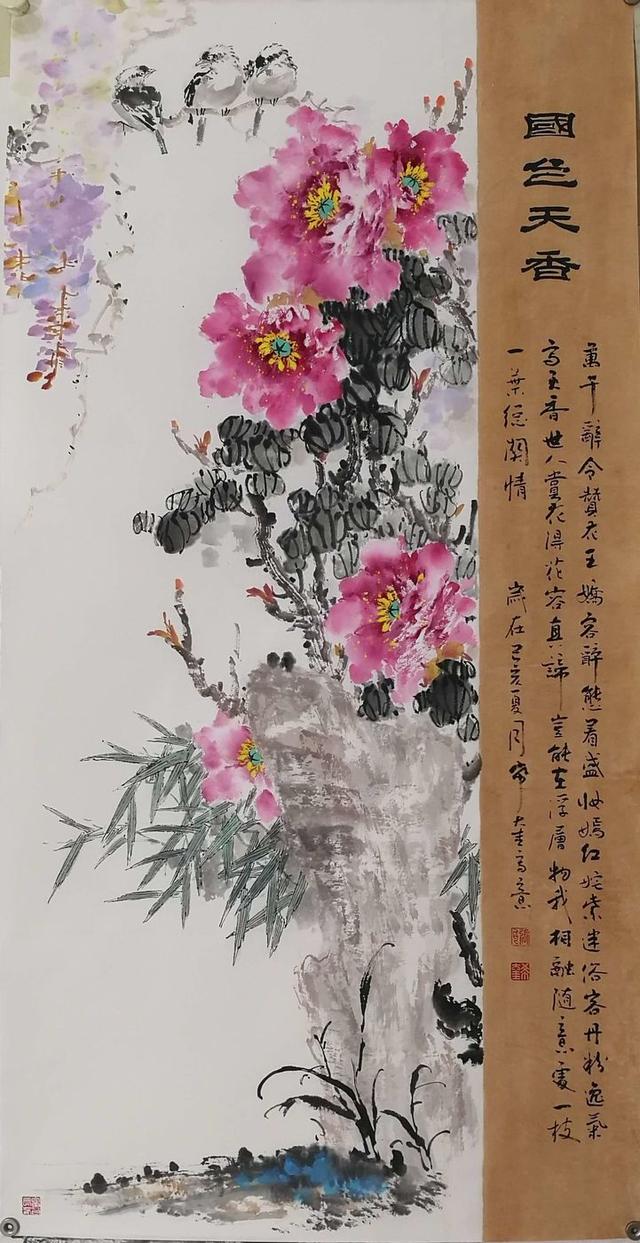 國色天香
萬千辭令贊花王嬌容醉態着盛妝嫣紅姹紫迷俗客丹粉逸氣
寫天香世人賞花得花容真諦豈能在浮層物我相融隨意處一枝
一葉總關情 歲在己亥夏月 寫意